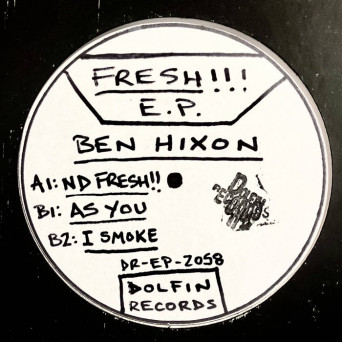 FRESH!!!
E.P.
BEN HIXON
A1: ND FRESH!!
B1: AS YOU
B2: I SMOKE
DR-EP-2058
DOLFIN
RECORDS